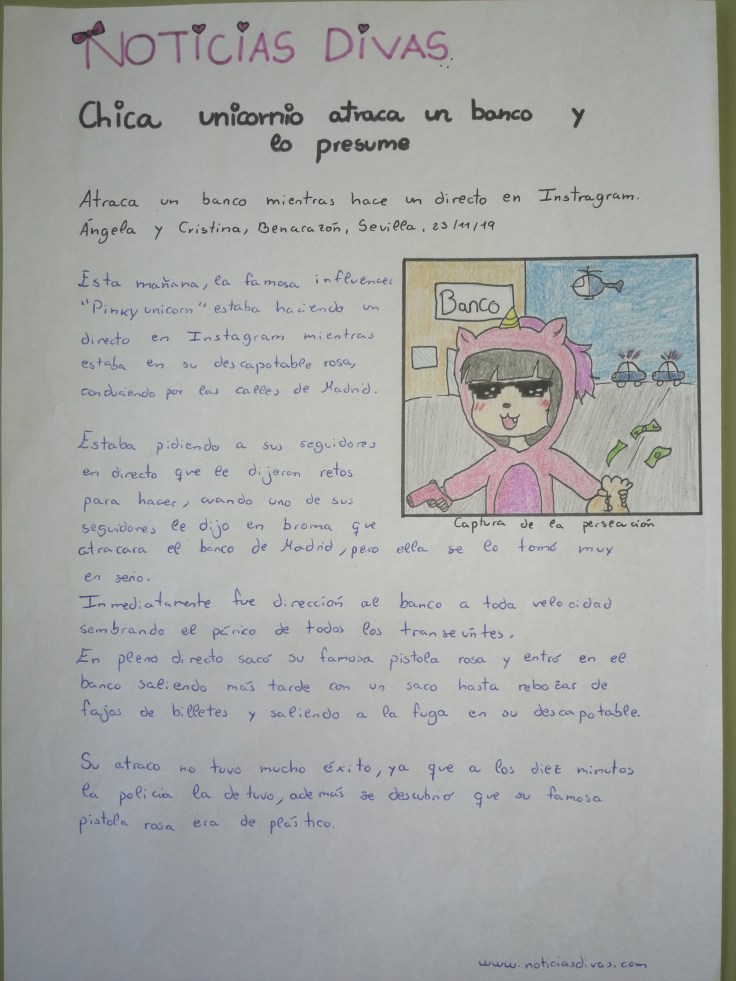 NOTICIAS DIVAS
Chica unicornio atraca un banco y
lo presume
Atraca un banco mientras hace un directo en Instragram.
Ángela y Cristina, Benacazón, Sevilla, 23/11/19
Esta mañana, la famosa influencer
"Pinky unicorn" estaba haciendo un
directo en Instagram mientras
estaba en su descapotable rosa,
conduciendo por las calles de Madrid.
Banco
$
Captura de la persecución
Estaba pidiendo a sus seguidores
en directo que le dijeran retos
para hacer, cuando uno de sus
seguidores le dijo en broma que
atracara el banco de Madrid, pero ella se lo tomó muy
en serio.
Inmediatamente fue dirección al banco a toda velocidad
sembrando el pánico de todos los transeúntes.
En pleno directo sacó su famosa pistola rosa y entró en el
banco saliendo más tarde con un saco hasta rebozar de
fajos de billetes y saliendo a la fuga en su descapotable.
Su atraco no tuvo mucho éxito, ya que a los diez minutos
la policía la detuvo, además se descubrió que su famosa
pistola rosa era de plástico.
www.noticiasdivas.com